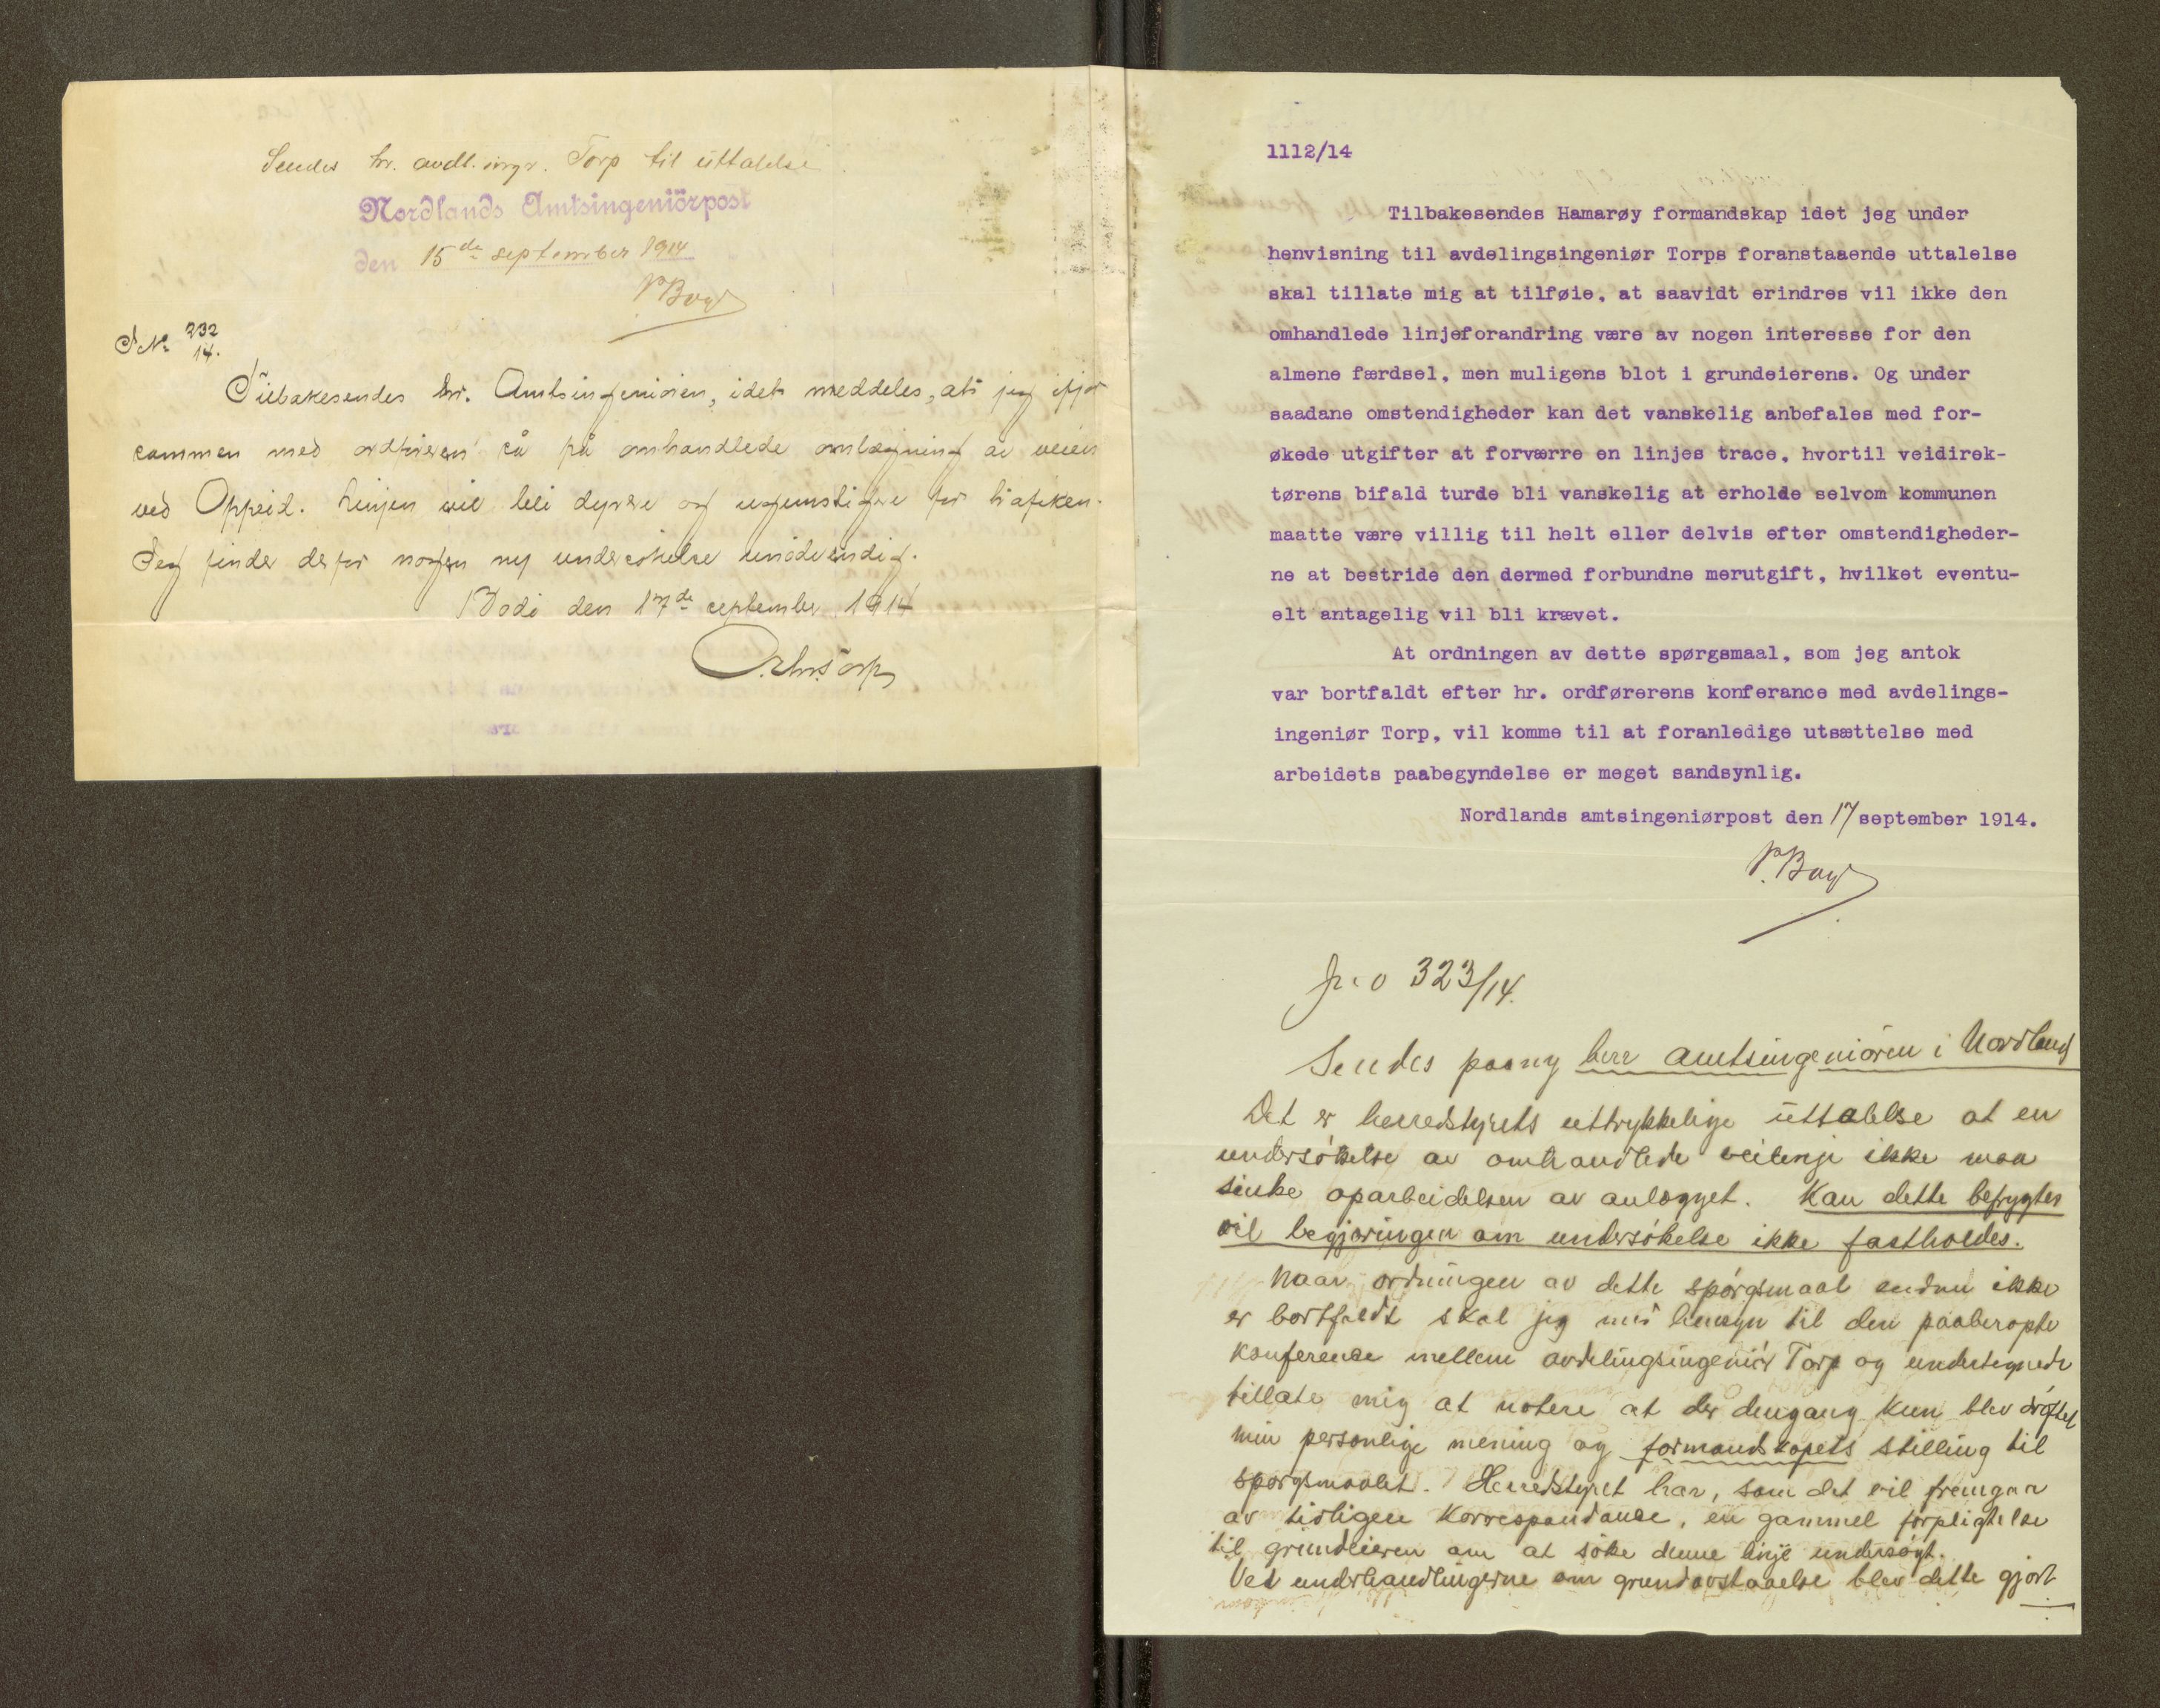 Sendes hr. avdl. ingr. Torp til uttalelse.
Nordlands Amtsingeniörpost
den 15de september 1914
P Bay
J No 232/14.
Tilbakesendes hr. Amtsingeniøren, idet meddeles, at jeg ifjor
sammen med ordføreren så på omhandlede omlægning av veien
ved Oppeid. Linjen vil bli dyrere og ugunstigere for trafiken.
Jeg finder derfor nogen ny undersøkelse unødvendig.
Bodø den 17de september 1914
O. Chr. Torp
1112/14
Tilbakesendes Hamarøy formandskap idet jeg under
henvisning til avdelingsingeniør Torps foranstaaende uttalelse
skal tillate mig at tilføie, at saavidt erindres vil ikke den
omhandlede linjeforandring være av nogen interesse for den
almene færdsel, men muligens blot i grundeierens. Og under
saadane omstendigheder kan det vanskelig anbefales med for-
økede utgifter at forværre en linjes trace, hvortil veidirek-
tørens bifald turde bli vanskelig at erholde selvom kommunen
maatte være villig til helt eller delvis efter omstendigheder-
ne at bestride den dermed forbundne merutgift, hvilket eventu-
elt antagelig vil bli krævet.
At ordningen av dette spørgsmaal, som jeg antok
var bortfaldt efter hr. ordførerens konferance med avdelings-
ingeniør Torp, vil komme til at foranledige utsættelse med
arbeidets paabegyndelse er meget sandsynlig.
Nordlands amtsingeniørpost den 17 september 1914.
P. Bay
323/14.
Sendes paany herr amtsingeniøren i Nordland
Det er herredstyrets uttrykkelige uttalelse at en
undersøkelse av omhandlede veilinje ikke maa
sinke oparbeidelsen av anlægget. Kan dette befrygtes
vil begjæringen om undersøkelse ikke fastholdes.
Naar ordningen av dette spørgsmaal endnu ikke
er bortfaldt skal jeg med hensyn til den paaberopte
konferense mellem avdelingsingeniør Torp og undertegnede
tillate mig at notere at der dengang kun blev drøftet
min personlige mening og formandskapets stilling til
spørgsmaalet. Herredstyret har, som det vil fremgaa
av tidligere korrespondanse, en gammel forpligtelse
til grundeieren om at søke denne linje undersøgt.
Ved underhandlingerne om grundavstaaelse blev dette gjort